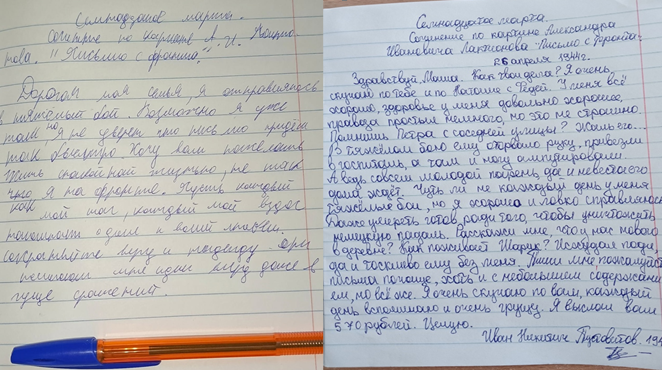 Семнадцатое марта.
Сочинение по картине А. И. Лактио-
нова. "Письмо с фронта".
Дорогая моя семья, я отправляюсь
в тяжелый бой. Возможно я уже
не уверен что письмо придёт
так быстро. Хочу вам пожелать
жить спокойной жизнью, не так
что я на фронте. Пусть каждый
мой шаг, каждый мой вздох
напомнит о моей
сохраняйте веру и надежду. они
помогают мне идти вперёд даже в
гуще сражений.
Семнадцатое марта.
Сочинение по картине Александра
Ивановича Лактионова "Письмо с фронта".
26 апреля 1944г.
Здравствуй Маша. Как твои дела? Я очень
скучаю по тебе и по Наташе с Федей. У меня всё
хорошо, здоровье у меня довольно хорошее,
правда простыл немного, но это не страшно.
Помнишь Петра с соседней улицы? Жаль его...
В тяжёлом бою ему оторвало руку, привезли
в госпиталь, а там и ногу ампутировали.
А ведь совсем молодой парень, да и невеста его
дома ждёт. Чуть ли не каждый день у меня
тяжёлые бои, но я хорошо и ловко справляюсь.
Даже умереть готов, ради того, чтобы уничтожить
немецкую падаль. Расскажи мне, что у нас нового
в деревне? Как поживает Шарик? Исхудал поди,
да и тоскливо ему без меня. Пиши мне пожалуйста
письма почаще, хоть и с небольшим содержани-
ем, но всё же. Я очень скучаю по вам, каждый
день вспоминаю и очень грущу. Я выслал вам
570 рублей. Целую.
Иван Никитич 194